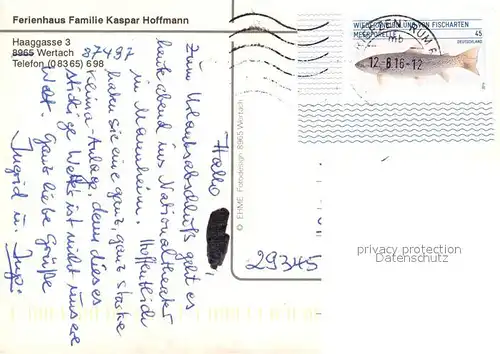 Ferienhaus Familie Kaspar Hoffmann
Haaggasse 3
8965 Wertach
87497
Telefon (08365) 698
Hallo
Zum Urlaubsabschluß geht es
heute abend ins Nationaltheater
in Mannheim. Hoffentlich
haben sie eine ganz, ganz starke
Klima-Anlage, denn dieses
stickige Wetter ist nicht unsere
Welt. Ganz liebe Grüße
Ingrid u.
© EHME Fotodesign 8965 Wertach
WIEDERANSIEDLUNG VON FISCHARTEN
MEERFORELLE
45
DEUTSCHLAND
12.8.16-12
mb
29345
privacy protection
Datenschutz